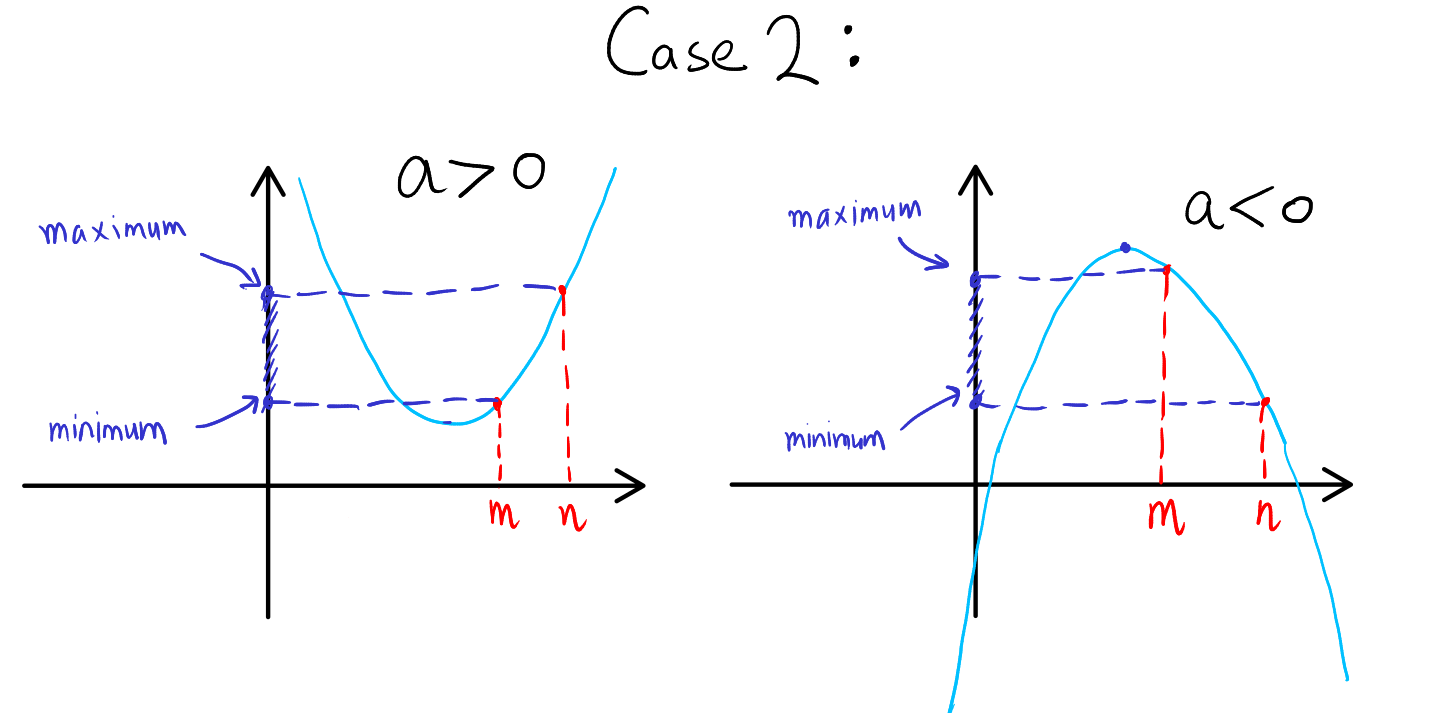 Case 2:
a>0
maximum
minimum
m
n
a<0
maximum
minimum
m
n